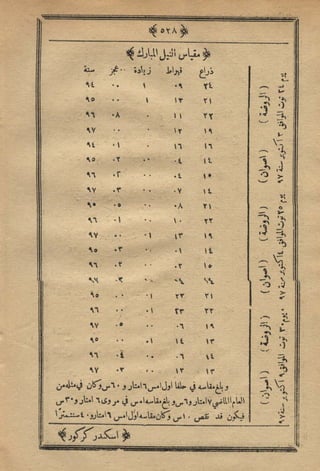 ﴿ ٥٢٨ ﴾
﴿ مقياس النيل المبارك ﴾
ذراع قيراط زيادة ٠٠ عجز سنة
٢٤ ٠٩ ١ ٠٠ ٩٤
٢١ ١٣ ١ ٠٠ ٩٥
٢٢ ١١ ٠ ٠٨ ٩٦
١٩ ١٢ ٠ ٠٠ ٩٧
١٦ ١٦ ٠ ٠١ ٩٤
١٤ ٠٤ ٠٠ ٠٢ ٩٥
١٥ ٠٤ ٠٠ ٠٣ ٩٦
١٤ ٠٧ ٠ ٠٣ ٩٧
٢١ ٠٨ ٠ ٠٥ ٩٥
٢٢ ١٠ ٠ ٠١ ٩٦
١٩ ١٣ ٠١ ٠ ٩٧
١٤ ٠١ ٠ ٠٣ ٩٥
١٥ ٠٢ ٠ ٠٢ ٩٦
٠ ٠٣ ٩٧
٢١ ٢٣ ٠١ ٠٠ ٩٥
٢٢ ٢٣ ٠١ ٠٠ ٩٦
١٩ ٠٦ ٠ ٠٥ ٩٧
١٣ ١٤ ٠١ ٠ ٩٥
١٤ ٠٦ ٠ ٠٤ ٩٦
١٣ ١٣ ٠ ٠٣ ٩٧
يوم ٢٤ توت الموافق ٣ اكتوبر سنة ٩٧
( الروضة )
( اصوان )
يوم ٢٥ توت الموافق ٤ اكتوبر سنة ٩٧
( الروضة )
( اصوان )
يوم ٣٠ توت الموافق ٩ اكتوبر سنة ٩٧
( الروضة )
( اصوان )
وبلغ مقاسه في حلفا اول امس ٦ امتار و ٦٠ س وكان في مثله من
العام الماضي ٧ امتار و ٦ س وبلغ مقاسه امس في مروى ٦ امتار و ٣٠ س
فيكون قد نقص ١٠ س وكان مقاسه اول امس ٦ امتار و ٤٠ سنتمترا
﴿ اسكندر كركور ﴾